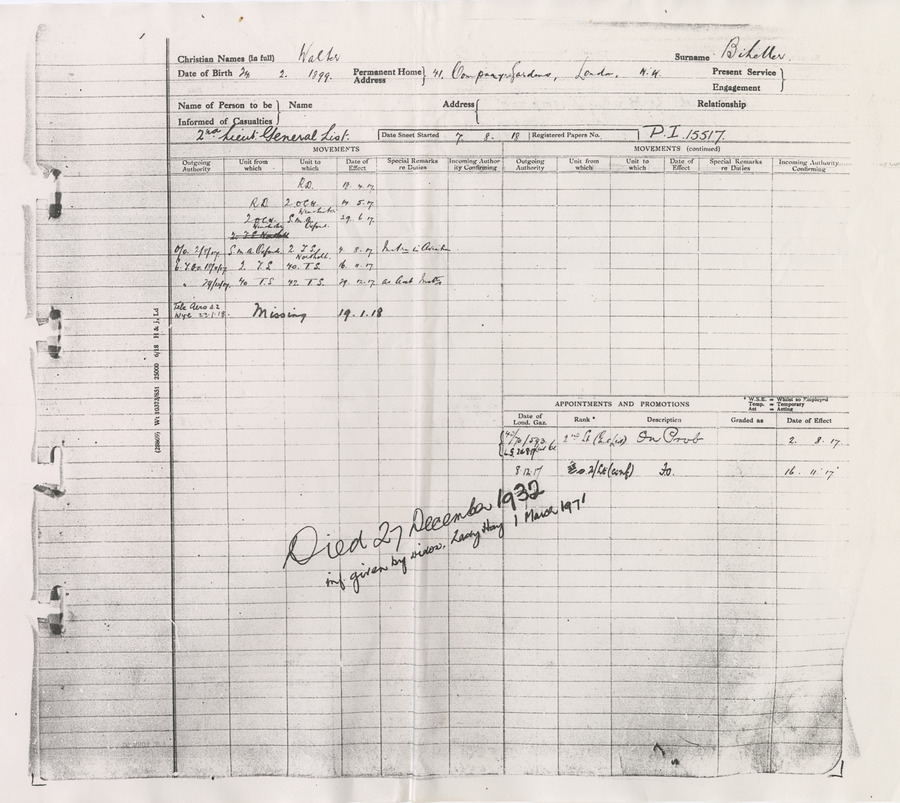 Christian Names (in full) Walter Surname Biheller
Date of Birth 24 2. 1899. Permanent Home Address } 41. Gardens, London, N.W. Present Service Engagement }
Name of Person to be Informed of Casualties } Name Address { Relationship
2nd Lieut General List. Date Sheet Started 7 8. 18 Registered Papers No. P.I. 15517.
MOVEMENTS MOVEMENTS (continued)
Outgoing Authority Unit from which Unit to which Date of Effect Special Remarks re Duties Incoming Authority Confirming Outgoing Authority Unit from which Unit to which Date of Effect Special Remarks re Duties Incoming Authority Confirming
R.D. 4.17
R.D. 2 O.C.H. Winchester 5.17
2 O.C.H. S.M.A. Oxford. 29. 6.17
S.M.A Oxford. 2. T.S. Northolt. 8.17
2. T.S 40. T.S. 16. 11.17
" 40 T.S 42. T.S. 29. 12.17 as
22-1-18. Missing 19.1.18
APPOINTMENTS AND PROMOTIONS
* W.S.E. = Whilst so Employed
Temp. = Temporary
Act = Acting
Date of Lond. Gaz. Rank * Description Graded as Date of Effect
2nd Lt On Prob 2. 8.17.
8 12.17 2/Lt (conf) Do. 16. 11.17
Died 27 December 1932
inf given by 1 March 1971
(28669) Wt 10373/851 25000 6/18 H & J, Ld